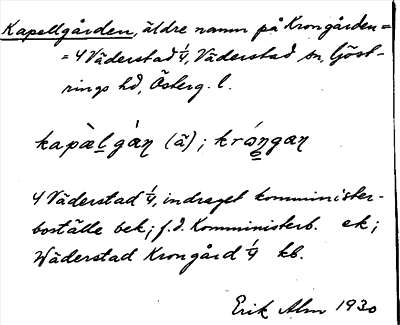 Kapellgården, äldre namn på Krongården =
= 4 Väderstad 1/4, Väderstad sn, Göst-
rings hd, Österg. l.
kapàl gàn (ä); króngan
4 Väderstad 1/4, indraget komminister-
boställe bek; f.d. Komministerb. ek;
Wäderstad Krongård 1/4 kb.
Erik Alm 1930